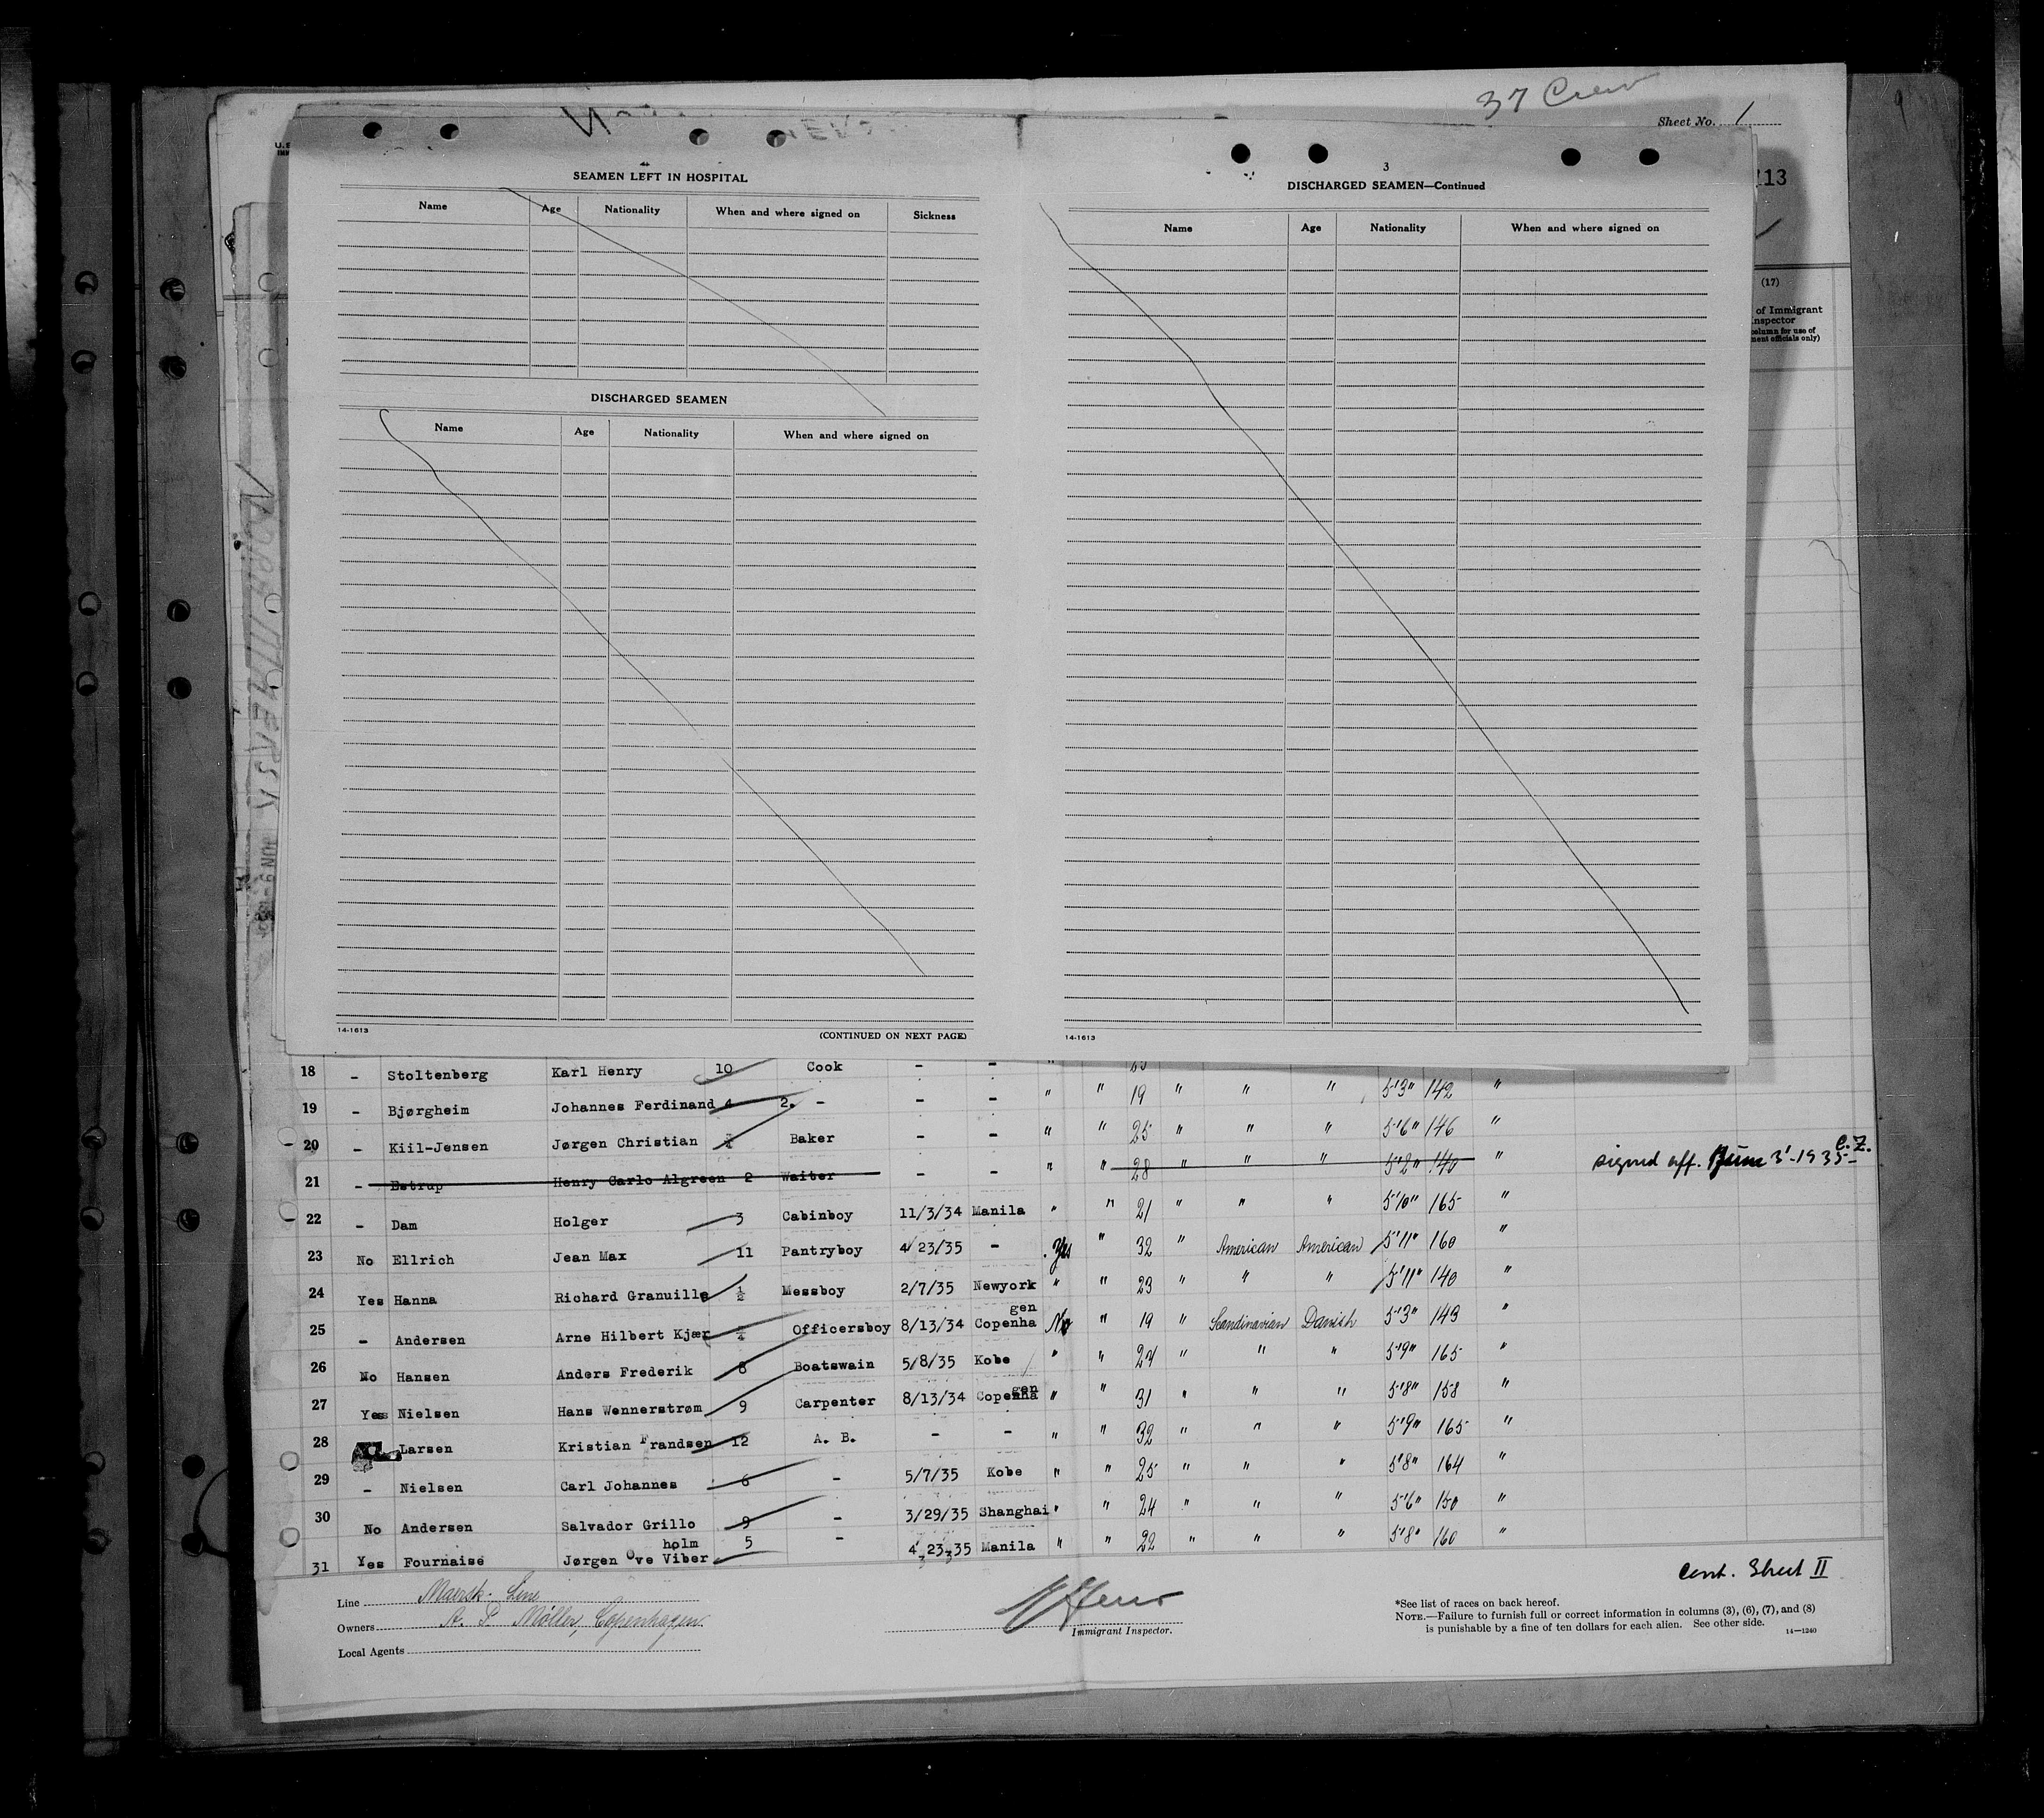 37 Crew
Sheet No. 1
113
SEAMEN LEFT IN HOSPITAL
Name Age Nationality When and where signed on Sickness
DISCHARGED SEAMEN
Name Age Nationality When and where signed on
14-1613 (CONTINUED ON NEXT PAGE)
3
DISCHARGED SEAMEN—Continued
Name Age Nationality When and where signed on
14-1613
(17)
of Immigrant
nspector
column for use of
ment officials only)
18 - Stoltenberg Karl Henry 10 Cook - -
19 - Bjørgheim Johannes Ferdinand 4 2. - - - " " 19 " " " 5'3" 142 "
20 - Kiil-Jensen Jørgen Christian Baker - - " " 25 " " " 5'6" 146 "
21 - Estrup Henry Carlo Algreen 2 Waiter - - " " 28 " " " 5'2" 140 " signed off. June 3'-1935 C.Z.
22 - Dam Holger 3 Cabinboy 11/3/34 Manila " " 21 " " " 5'10" 165 "
23 No Ellrich Jean Max 11 Pantryboy 4/23/35 - Yes " 32 " American American 5'11" 160 "
24 Yes Hanna Richard Granuille ½ Messboy 2/7/35 Newyork " " 23 " " " 5'11" 140 "
25 - Andersen Arne Hilbert Kjær Officersboy 8/13/34 Copenhagen No " 19 " Scandinavian Danish 5'3" 149 "
26 No Hansen Anders Frederik 8 Boatswain 5/8/35 Kobe " " 24 " " " 5'9" 165 "
27 Yes Nielsen Hans Wennerstrøm 9 Carpenter 8/13/34 Copenhagen " " 31 " " " 5'8" 158 "
28 Larsen Kristian Frandsen 12 A. B. - - " " 32 " " " 5'9" 165 "
29 - Nielsen Carl Johannes 6 - 5/7/35 Kobe " " 25 " " " 5'8" 164 "
30 No Andersen Salvador Grillo 9 - 3/29/35 Shanghai " " 24 " " " 5'6" 150 "
31 Yes Fournaise Jørgen Ove Viberholm 5 - 4/23/35 Manila " " 22 " " " 5'8" 160 "
Cont. Sheet II
Line Maersk Line
Owners A. P. Møller, Copenhagen
Local Agents
Immigrant Inspector.
*See list of races on back hereof.
NOTE.—Failure to furnish full or correct information in columns (3), (6), (7), and (8)
is punishable by a fine of ten dollars for each alien. See other side.
14—1240